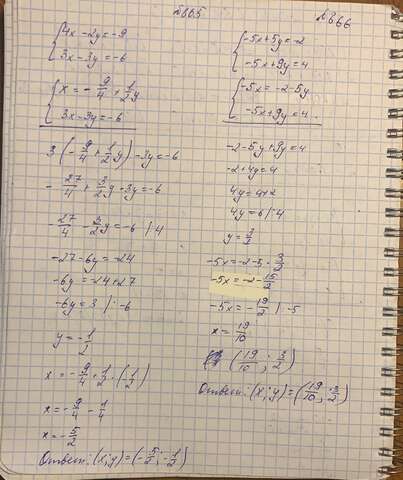 №665
{ 4x - 2y = -9
3x - 3y = -6
{ x = -9/4 + 1/2 y
3x - 3y = -6
3(-9/4 + 1/2 y) - 3y = -6
-27/4 + 3/2 y - 3y = -6
-27/4 - 3/2 y = -6 | 4
-27 - 6y = -24
-6y = -24 + 27
-6y = 3 | : -6
y = -1/2
x = -9/4 + 1/2 · (-1/2)
x = -9/4 - 1/4
x = -5/2
Ответ: (x; y) = (-5/2; -1/2)
№666
{ -5x + 5y = -2
-5x + 9y = 4
{ -5x = -2 - 5y
-5x + 9y = 4
-2 - 5y + 9y = 4
-2 + 4y = 4
4y = 4 + 2
4y = 6 | : 4
y = 3/2
-5x = -2 - 5 · 3/2
-5x = -2 - 15/2
-5x = -19/2 | : -5
x = 19/10
(19/10 ; 3/2)
Ответ: (x; y) = (19/10 ; 3/2)